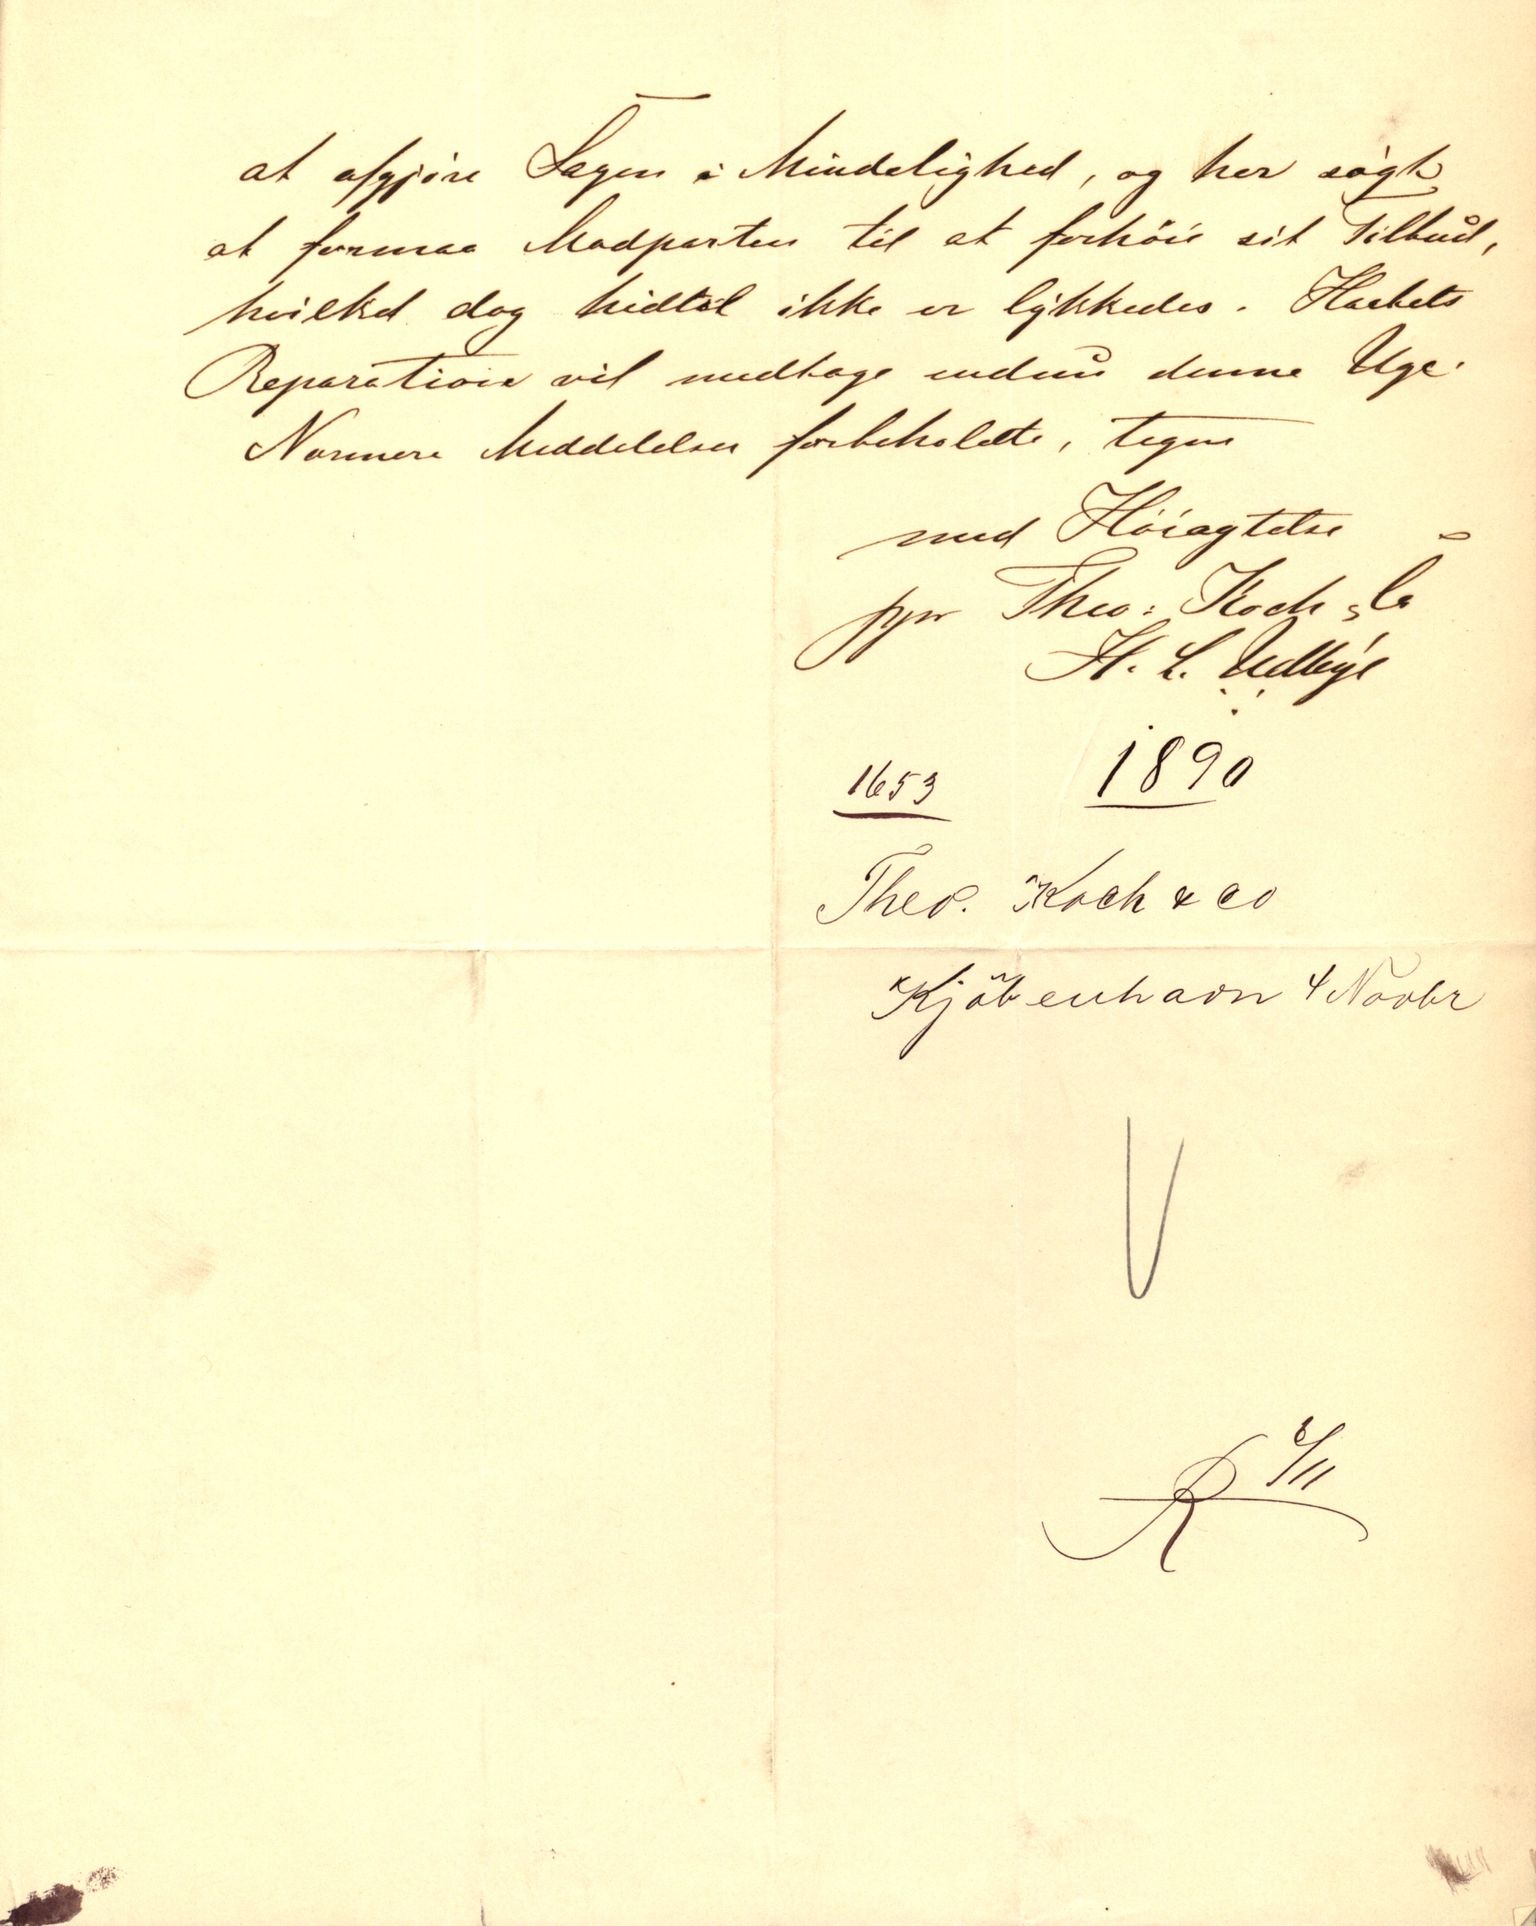 at afgjøre Sagen i Mindelighed, og har søgt
at formaa Modparten til at forhöie sit Tilbud,
hvilket dog hidtil ikke er lykkedes. Harkets
Reparation vil medtage endnu denne Uge.
Nærmere Meddelelser forbeholdte, tegne
med Höiagtelse
ppr Theo: Koch & Co
H. L. Udbye
1653 1890
Theo. Koch & Co
Kjöbenhavn 4 Novbr
R 6/11